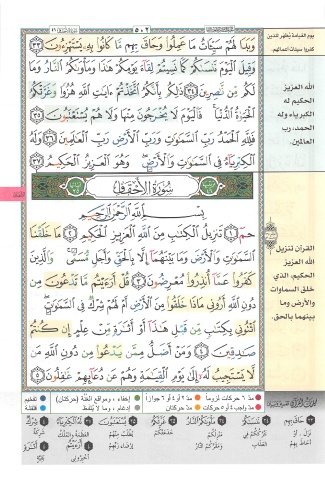 ٥٠٢
يوم القيامة يُظهر للذين
كفروا سيئات أعمالهم.
وَبَدَا لَهُمْ سَيِّئَاتُ مَا عَمِلُوا۟ وَحَاقَ بِهِم مَّا كَانُوا۟ بِهِۦ يَسْتَهْزِءُونَ ٣٣
وَقِيلَ ٱلْيَوْمَ نَنسَىٰكُمْ كَمَا نَسِيتُمْ لِقَآءَ يَوْمِكُمْ هَٰذَا وَمَأْوَىٰكُمُ ٱلنَّارُ وَمَا
لَكُم مِّن نَّٰصِرِينَ ٣٤ ذَٰلِكُم بِأَنَّكُمُ ٱتَّخَذْتُمْ ءَايَٰتِ ٱللَّهِ هُزُوًا وَغَرَّتْكُمُ
ٱلْحَيَوٰةُ ٱلدُّنْيَا ۚ فَٱلْيَوْمَ لَا يُخْرَجُونَ مِنْهَا وَلَا هُمْ يُسْتَعْتَبُونَ ٣٥
فَلِلَّهِ ٱلْحَمْدُ رَبِّ ٱلسَّمَٰوَٰتِ وَرَبِّ ٱلْأَرْضِ رَبِّ ٱلْعَٰلَمِينَ ٣٦ وَلَهُ
ٱلْكِبْرِيَآءُ فِى ٱلسَّمَٰوَٰتِ وَٱلْأَرْضِ ۖ وَهُوَ ٱلْعَزِيزُ ٱلْحَكِيمُ ٣٧
الله العزيز
الحكيم له
الكبرياء وله
الحمد، رب
العالمين.
سُورَةُ ٱلْأَحْقَافِ
بِسْمِ ٱللَّهِ ٱلرَّحْمَٰنِ ٱلرَّحِيمِ
حمٓ ١ تَنزِيلُ ٱلْكِتَٰبِ مِنَ ٱللَّهِ ٱلْعَزِيزِ ٱلْحَكِيمِ ٢ مَا خَلَقْنَا
ٱلسَّمَٰوَٰتِ وَٱلْأَرْضَ وَمَا بَيْنَهُمَآ إِلَّا بِٱلْحَقِّ وَأَجَلٍ مُّسَمًّى ۚ وَٱلَّذِينَ
كَفَرُوا۟ عَمَّآ أُنذِرُوا۟ مُعْرِضُونَ ٣ قُلْ أَرَءَيْتُم مَّا تَدْعُونَ مِن
دُونِ ٱللَّهِ أَرُونِى مَاذَا خَلَقُوا۟ مِنَ ٱلْأَرْضِ أَمْ لَهُمْ شِرْكٌ فِى ٱلسَّمَٰوَٰتِ ۖ
ٱئْتُونِى بِكِتَٰبٍ مِّن قَبْلِ هَٰذَآ أَوْ أَثَٰرَةٍ مِّنْ عِلْمٍ إِن كُنتُمْ
صَٰدِقِينَ ٤ وَمَنْ أَضَلُّ مِمَّن يَدْعُوا۟ مِن دُونِ ٱللَّهِ مَن
لَّا يَسْتَجِيبُ لَهُۥٓ إِلَىٰ يَوْمِ ٱلْقِيَٰمَةِ وَهُمْ عَن دُعَآئِهِمْ غَٰفِلُونَ ٥
القرآن تنزيل
الله العزيز
الحكيم، الذي
خلق السماوات
والأرض وما
بينهما بالحق.
مدّ ٦ حركات لزوماً مدّ ٢ أو ٤ أو ٦ جوازاً إخفاء، ومواقع الغنّة (حركتان) تفخيم
مدّ واجب ٤ أو ٥ حركات مدّ حركتان إدغام، وما لا يُلفظ قلقلة